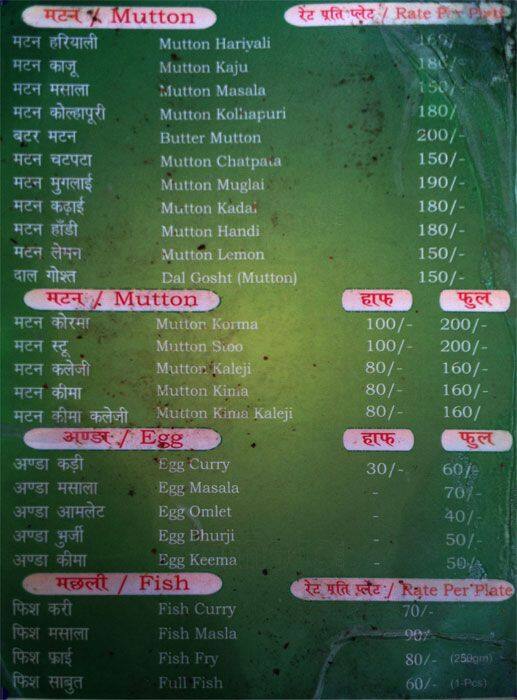 मटन / Mutton रेट प्रति प्लेट / Rate Per Plate
मटन हरियाली Mutton Hariyali 160/-
मटन काजू Mutton Kaju 180/-
मटन मसाला Mutton Masala 150/-
मटन कोल्हापूरी Mutton Kolhapuri 180/-
बटर मटन Butter Mutton 200/-
मटन चटपटा Mutton Chatpata 150/-
मटन मुगलाई Mutton Muglai 190/-
मटन कढ़ाई Mutton Kadai 180/-
मटन हाँडी Mutton Handi 180/-
मटन लेमन Mutton Lemon 150/-
दाल गोश्त Dal Gosht (Mutton) 150/-
मटन / Mutton हाफ फुल
मटन कोरमा Mutton Korma 100/- 200/-
मटन स्टू Mutton Stoo 100/- 200/-
मटन कलेजी Mutton Kaleji 80/- 160/-
मटन कीमा Mutton Kima 80/- 160/-
मटन कीमा कलेजी Mutton Kima Kaleji 80/- 160/
अण्डा / Egg हाफ फुल
अण्डा कड़ी Egg Curry 30/- 60/-
अण्डा मसाला Egg Masala - 70/-
अण्डा आमलेट Egg Omlet - 40/-
अण्डा भुर्जी Egg Bhurji - 50/-
अण्डा कीमा Egg Keema - 50/-
मछली / Fish रेट प्रति प्लेट / Rate Per Plate
फिश करी Fish Curry 70/-
फिश मसाला Fish Masla 90/-
फिश फ्राई Fish Fry 80/- (250gm)
फिश साबुत Full Fish 60/- (1-Pcs)